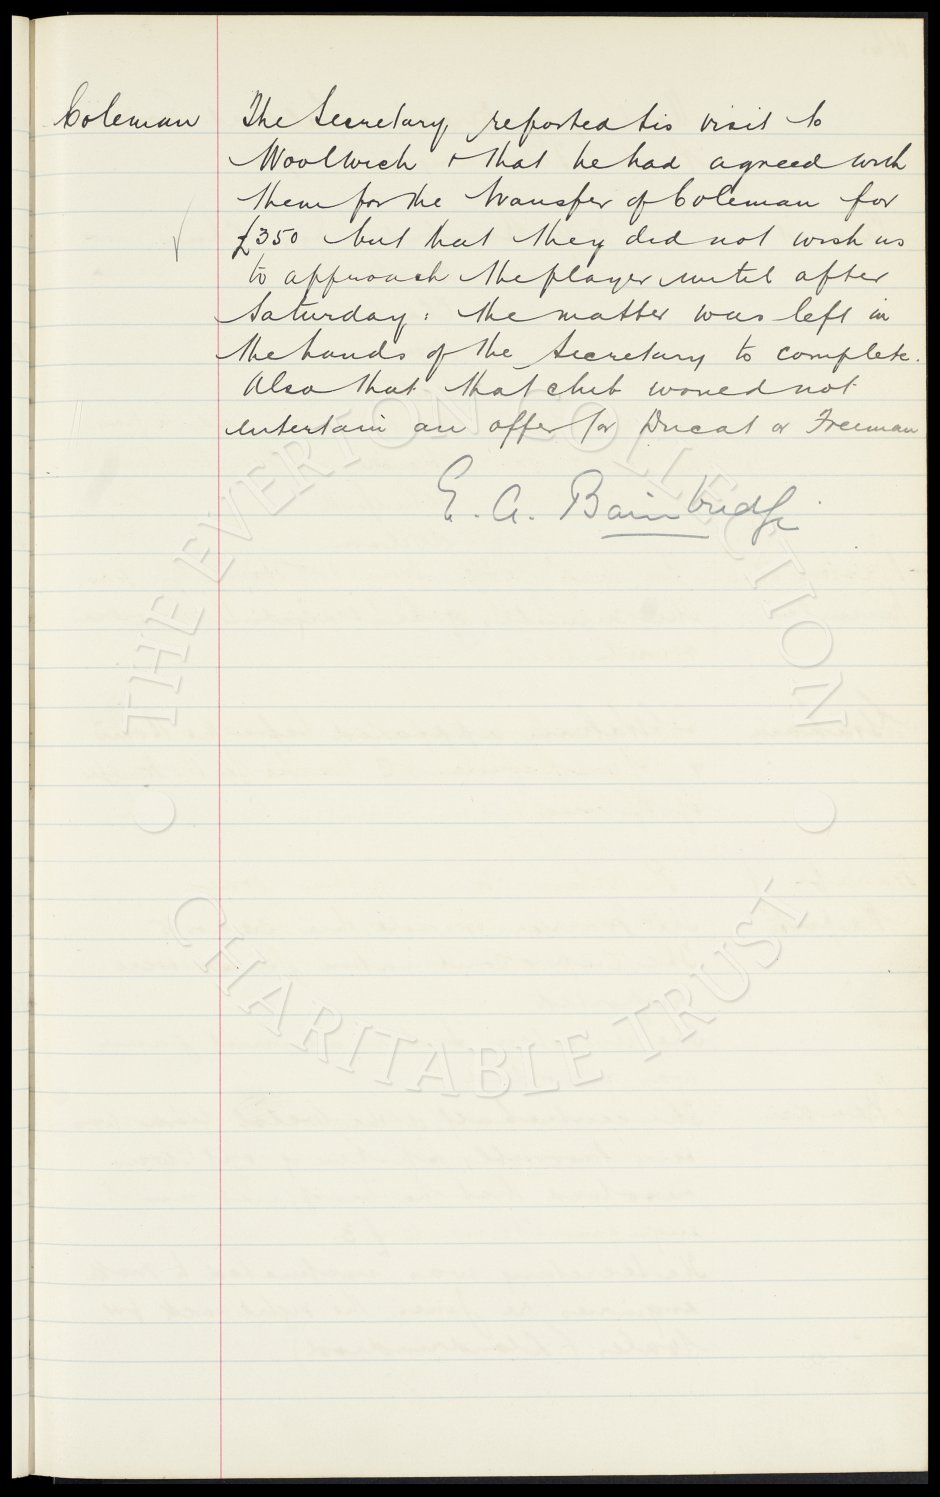 Coleman The Secretary reported his visit to
Woolwich & that he had agreed with
them for the transfer of Coleman for
£350 but that they did not wish us
to approach the player until after
Saturday : the matter was left in
the hands of the Secretary to complete.
Also that that club would not
entertain an offer for Ducat or Freeman
E. A. Bainbridge
THE EVERTON COLLECTION
CHARITABLE TRUST